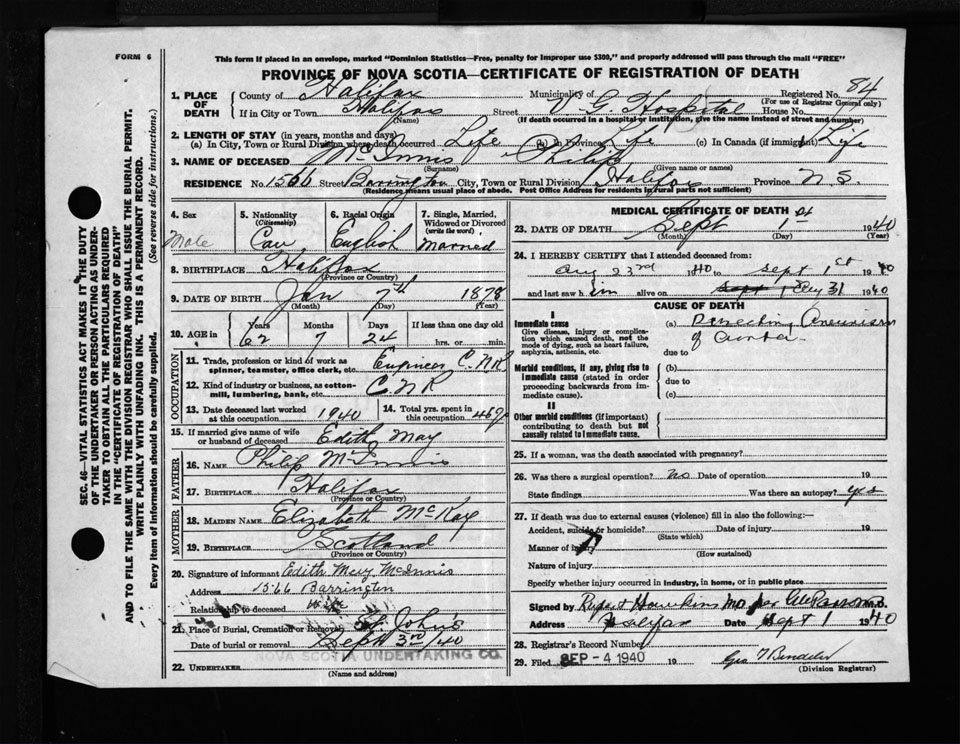 FORM 6
This form if placed in an envelope, marked "Dominion Statistics—Free, penalty for improper use $300," and properly addressed will pass through the mail "FREE"
PROVINCE OF NOVA SCOTIA—CERTIFICATE OF REGISTRATION OF DEATH
1. PLACE OF DEATH County of Halifax Municipality of Registered No. 84
(For use of Registrar General only)
If in City or Town Halifax Street V G. Hospital House No.
(Name) (If death occurred in a hospital or institution, give the name instead of street and number)
2. LENGTH OF STAY (in years, months and days)
(a) In City, Town or Rural Division where death occurred Life (b) In Province Life (c) In Canada (if immigrant) Life
3. NAME OF DECEASED McInnis Philip
(Surname) (Given name or names)
RESIDENCE No. 1566 Street Barrington City, Town or Rural Division Halifax Province N S.
(Residence, means usual place of abode. Post Office Address for residents in rural parts not sufficient)
4. Sex Male
5. Nationality (Citizenship) Can
6. Racial Origin English
7. Single, Married, Widowed or Divorced (write the word) Married
8. BIRTHPLACE Halifax
(Province or Country)
9. DATE OF BIRTH Jan 7th 1878
(Month) (Day) (Year)
10. AGE in Years 62 Months 7 Days 24 If less than one day old
hrs. or min.
OCCUPATION
11. Trade, profession or kind of work as spinner, teamster, office clerk, etc. Engineer C.N.R
12. Kind of industry or business, as cotton-mill, lumbering, bank, etc. C N R
13. Date deceased last worked at this occupation 1940
14. Total yrs. spent in this occupation 46
15. If married give name of wife or husband of deceased Edith May
FATHER
16. NAME Philip McInnis
17. BIRTHPLACE Halifax
(Province or Country)
MOTHER
18. MAIDEN NAME Elizabeth McKay
19. BIRTHPLACE Scotland
(Province or Country)
20. Signature of informant Edith May McInnis
Address 1566 Barrington
Relationship to deceased wife
21. Place of Burial, Cremation or Removal St. John's
Date of burial or removal Sept 3rd/40
22. UNDERTAKER NOVA SCOTIA UNDERTAKING CO.
(Name and address)
MEDICAL CERTIFICATE OF DEATH
23. DATE OF DEATH Sept 1st 1940
(Month) (Day) (Year)
24. I HEREBY CERTIFY that I attended deceased from:
Aug 23rd 1940 to Sept 1st 1940
and last saw him alive on Sept 1 Aug 31 1940
CAUSE OF DEATH
I
Immediate cause
Give disease, injury or complication which caused death, not the mode of dying, such as heart failure, asphyxia, asthenia, etc.
(a) Dissecting Aneurism of Aorta
due to
Morbid conditions, if any, giving rise to immediate cause (stated in order proceeding backwards from immediate cause)
(b)
due to
(c)
II
Other morbid conditions (if important) contributing to death but not causally related to immediate cause.
25. If a woman, was the death associated with pregnancy?
26. Was there a surgical operation? No Date of operation 19
State findings Was there an autopsy? yes
27. If death was due to external causes (violence) fill in also the following:—
Accident, suicide or homicide? Date of injury 19
(State which)
Manner of injury
(How sustained)
Nature of injury
Specify whether injury occurred in industry, in home, or in public place
Signed by Rupert Hawkins MD M.D.
Address Halifax Date Sept 1 1940
28. Registrar's Record Number
29. Filed SEP - 4 1940 19 Geo
(Division Registrar)
SEC. 46—VITAL STATISTICS ACT MAKES IT THE DUTY
OF THE UNDERTAKER OR PERSON ACTING AS UNDER-
TAKER TO OBTAIN ALL THE PARTICULARS REQUIRED
IN THE "CERTIFICATE OF REGISTRATION OF DEATH"
AND TO FILE THE SAME WITH THE DIVISION REGISTRAR WHO SHALL ISSUE THE BURIAL PERMIT.
WRITE PLAINLY WITH UNFADING INK. THIS IS A PERMANENT RECORD.
Every item of information should be carefully supplied. (See reverse side for instructions.)